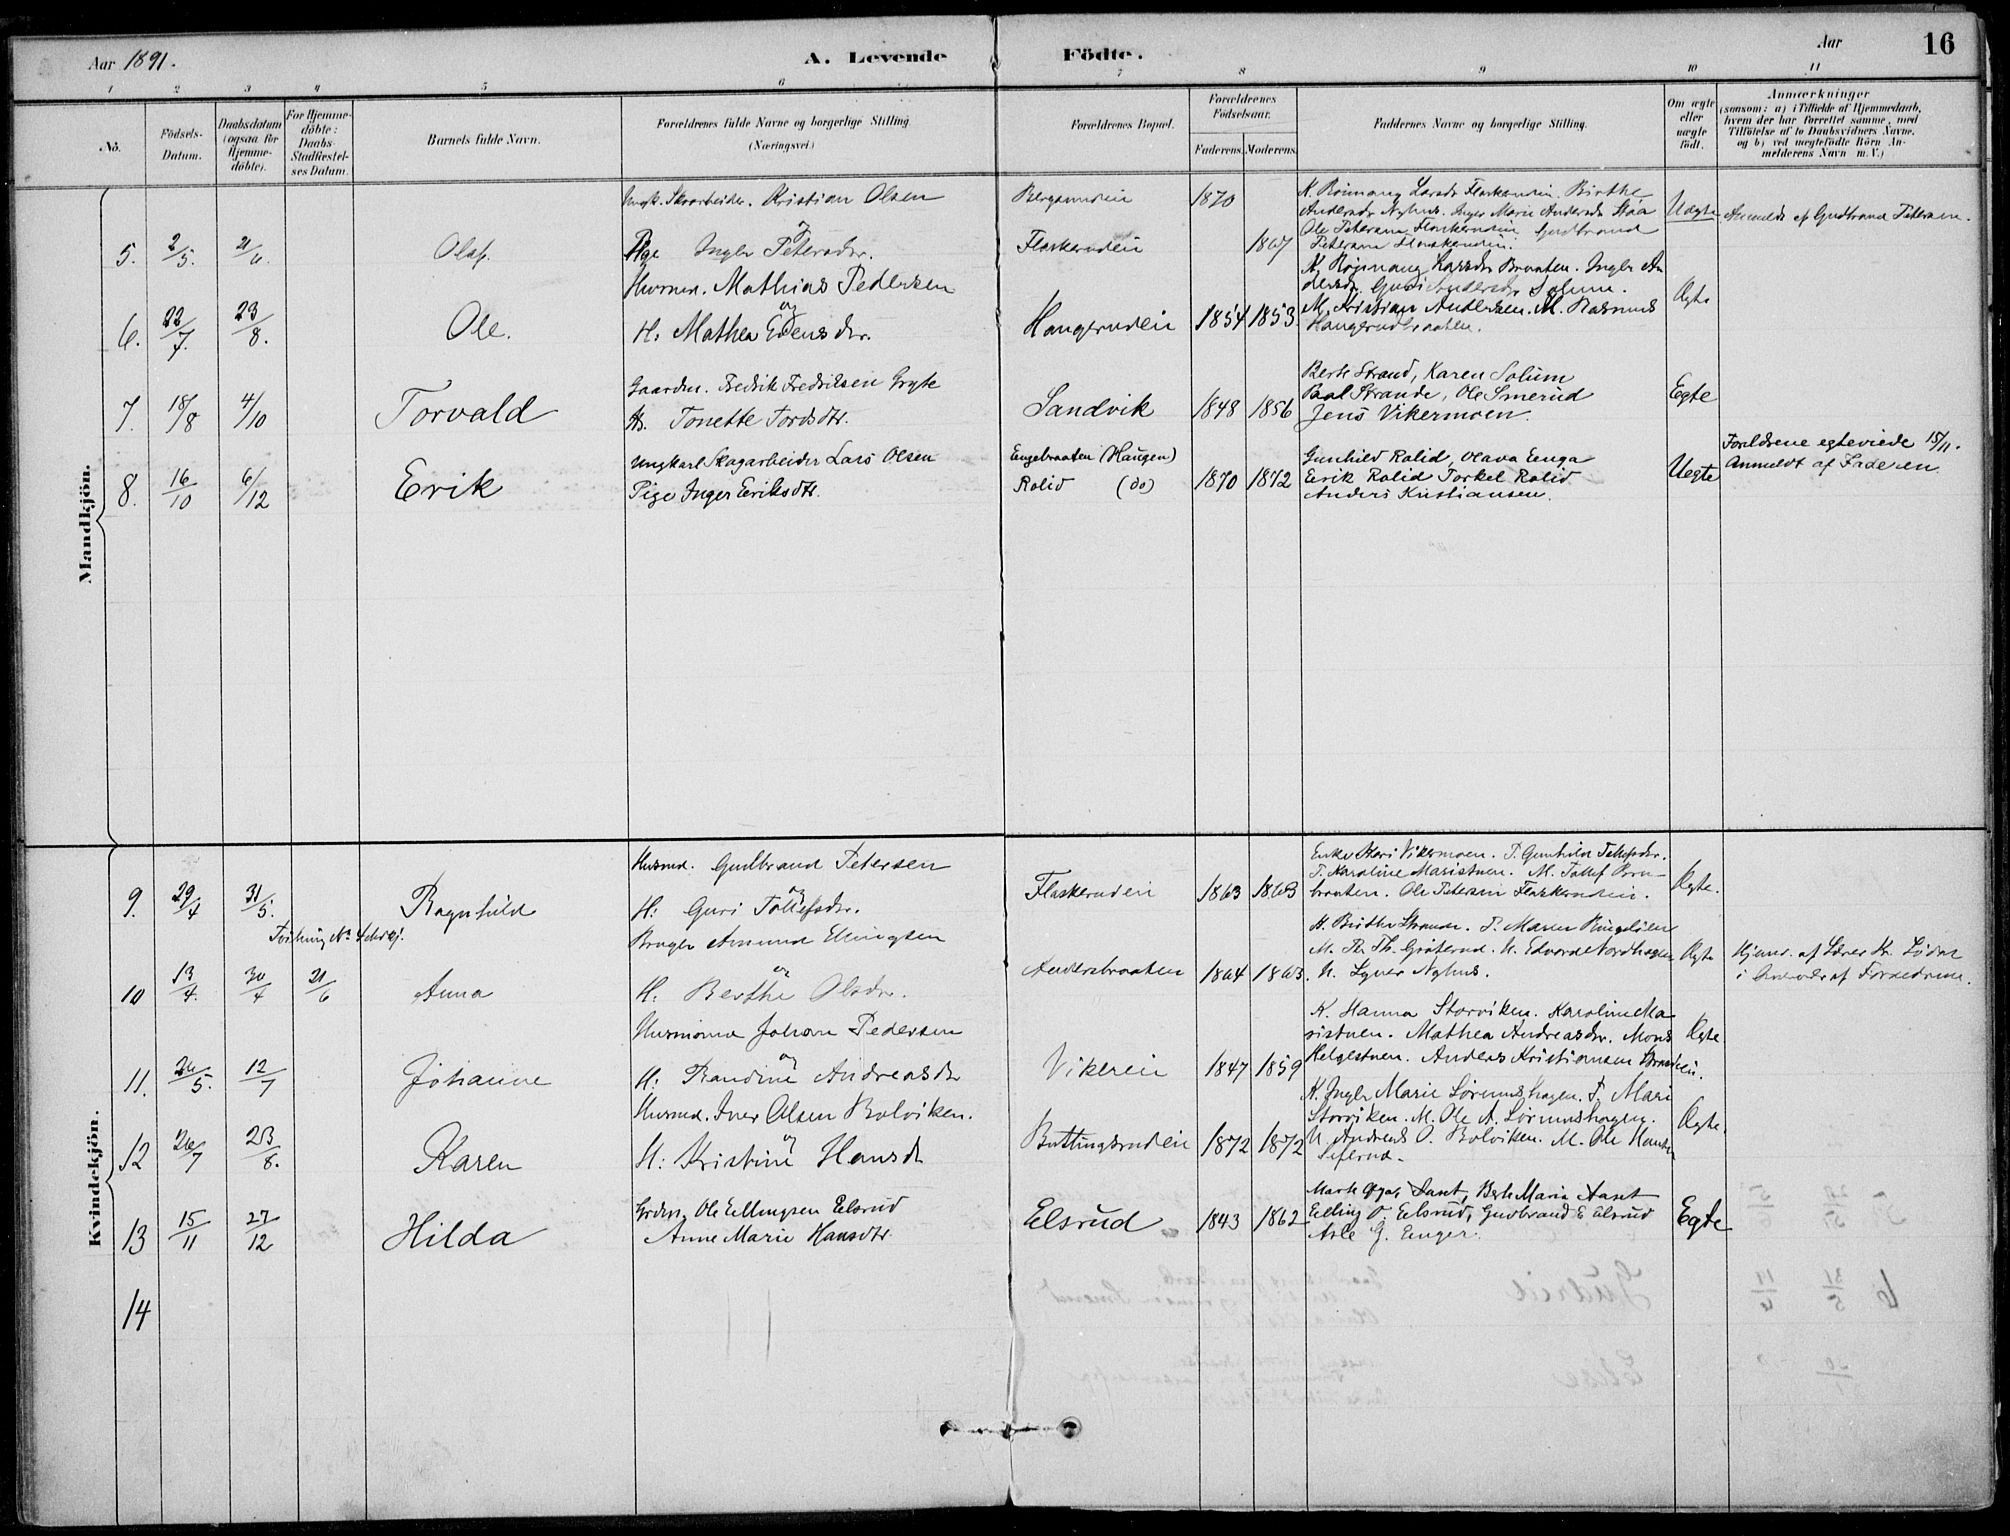 Aar 1891.
A. Levende Födte.
Aar
16
1 2 3 4 5 6 7 8 9 10 11
No.
Födsels-
Datum.
Daabsdatum
(ogsaa for
Hjemme-
döbte).
For Hjemme-
döbte:
Daabs-
Stadfæstel-
ses Datum.
Barnets fulde Navn.
Forældrenes fulde Navne og borgerlige Stilling
(Næringsvei.)
Forældrenes Bopæl.
Forældrenes
Födselsaar.
Faderens. Moderens.
Faddernes Navne og borgerlige Stilling.
Om ægte
eller
uægte
födt.
Anmærkninger
(saasom: a) i Tilfælde af Hjemmedaab,
hvem der har forrettet samme, med
Tilföielse af to Daabsvidners Navne.
og b) ved uægtefödte Börn An-
melderens Navn m. V.)
Mandkjön.
5. 2/5. 21/6. Olaf.
Kristian Olsen
og
Pige Ingeb Petersdr.
Flaskerudeie
1870
1867
Ole Petersen Flaskerudeie Gudbrand
Petersen Flaskerudeie.
Uægte
Anmeldt af Gudbrand Petersen.
6. 22/7. 23/8. Ole.
Husmd. Mathias Pedersen
og
H. Mathea Evensdr.
Haugerudeie
1854 1853
M. Kristian Andersen. M. Rasmus
Haugerudbraaten.
Ægte
7. 18/8 4/10 Torvald
Gaardm. Fredrik Fredriksen Gryte
H. Tonette Tordsdtr.
Sandvik
1848 1856
Berte Strand, Karen Solum
Paal Strande, Ole Smerud
Jens Vikermoen.
Egte
8. 16/10 6/12 Erik
Ungkarl Skogarbeider Lars Olsen
Pige Inger Eriksdtr.
Engebraaten (Haugen)
Rolid (do)
1870 1872
Gunhild Rolid, Olava Enga
Erik Rolid Torkel Rolid
Anders Kristiansen.
Uegte
Forældrene egteviede 15/11.
Anmeldt af Faderen.
Kvindekjön.
9. 29/4 31/5. Ragnhild
Husmd. Gudbrand Petersen
og
H: Guri Tollefsdr.
Flaskerudeie
1863 1863
Enke Kari Vikermoen. P. Gunhild Tollefsdr.
P. Karoline Maristuen. M. Tollef
braaten. Ole Petersen Flaskerudeie.
Ægte.
10 13/4. 30/4 21/6 Anna
Bruger Amund Ellingsen
og
H. Berthe Olsdr.
Andersbraaten
1864 1863.
K. Birthe Strande. P. Maren Ringelien
U. Edvard Nordhagen
U. Syver Nyhus.
Ægte
Hjemd. af Lærer
i Overvær af Forældrene.
11. 26/5. 12/7 Johanne
Husmand Johan Pedersen
og
H: Randine Andreasdr
Vikereie
1847 1859
K. Hanna Storviken. Karoline Ma-
ristuen. Mathea Andreasdr. Mons
Helgestuen. Anders Kristiansen
Ægte
12 26/7 23/8. Karen
Husmd. Iver Olsen Bolviken.
og
H: Kristine Hansdr
Buttingsrudeie
1872 1872
K. Ingeb. Marie Sørumshagen. P. Mari
Storviken. M. Ole A. Sørumshagen.
U Andreas O. Bolviken. M. Ole Hansen
Ægte.
13 15/11 27/12 Hilda
Grdm. Ole Ellingsen Elsrud
Anne Marie Hansdtr
Elsrud
1843 1862
Aaset, Berte Maria Aaset
Elling O. Elsrud, Gudbrand E Elsrud
Asle G. Enger.
Egte
14